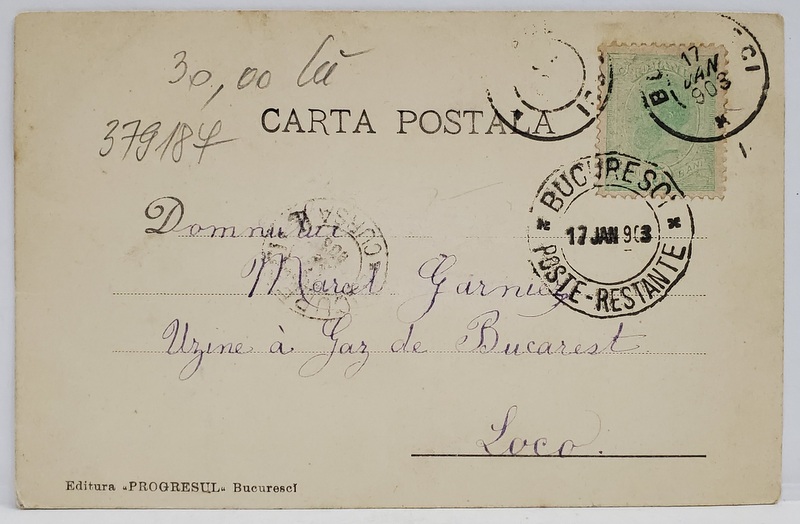 30,00 lei
379184
CARTA POSTALA
BUCURESCI
17 JAN 903
POSTE-RESTANTE
17
JAN
903
CURSA
Domnului
Marcel Garnier
Uzine à Gaz de Bucarest.
Loco.
Editura «PROGRESUL« Bucurescĭ